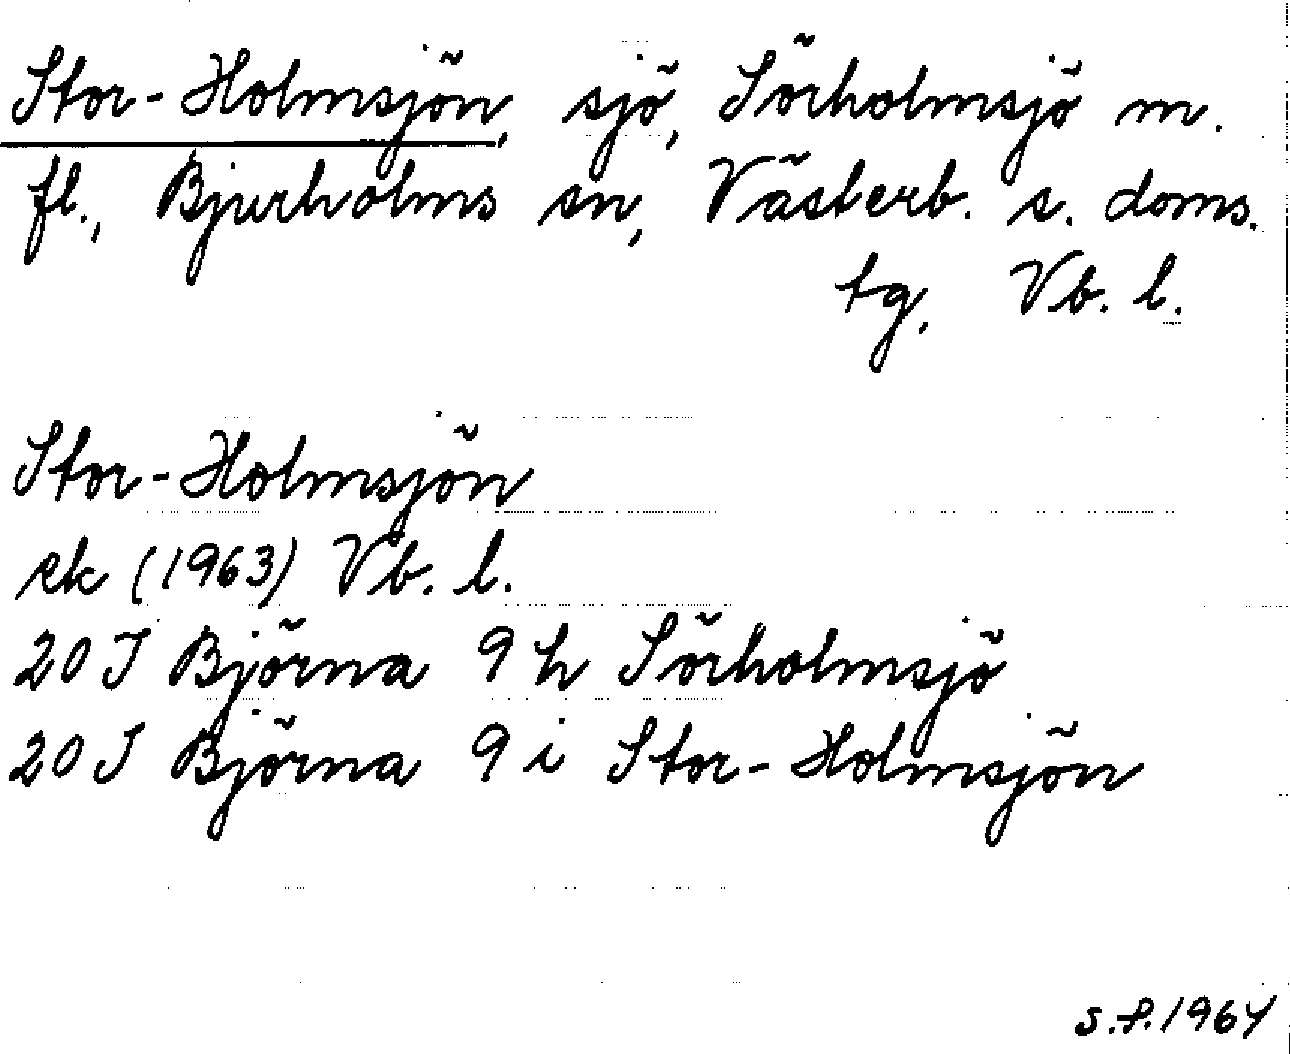 Stor-Holmsjön, sjö, Sörholmsjö m.
fl., Bjurholms sn, Västerb. s. doms.
tg, Vb. l.
Stor-Holmsjön
ek (1963) Vb. l.
20 J Björna 9 h Sörholmsjö
20 J Björna 9 i Stor-Holmsjön
S.f. 1964